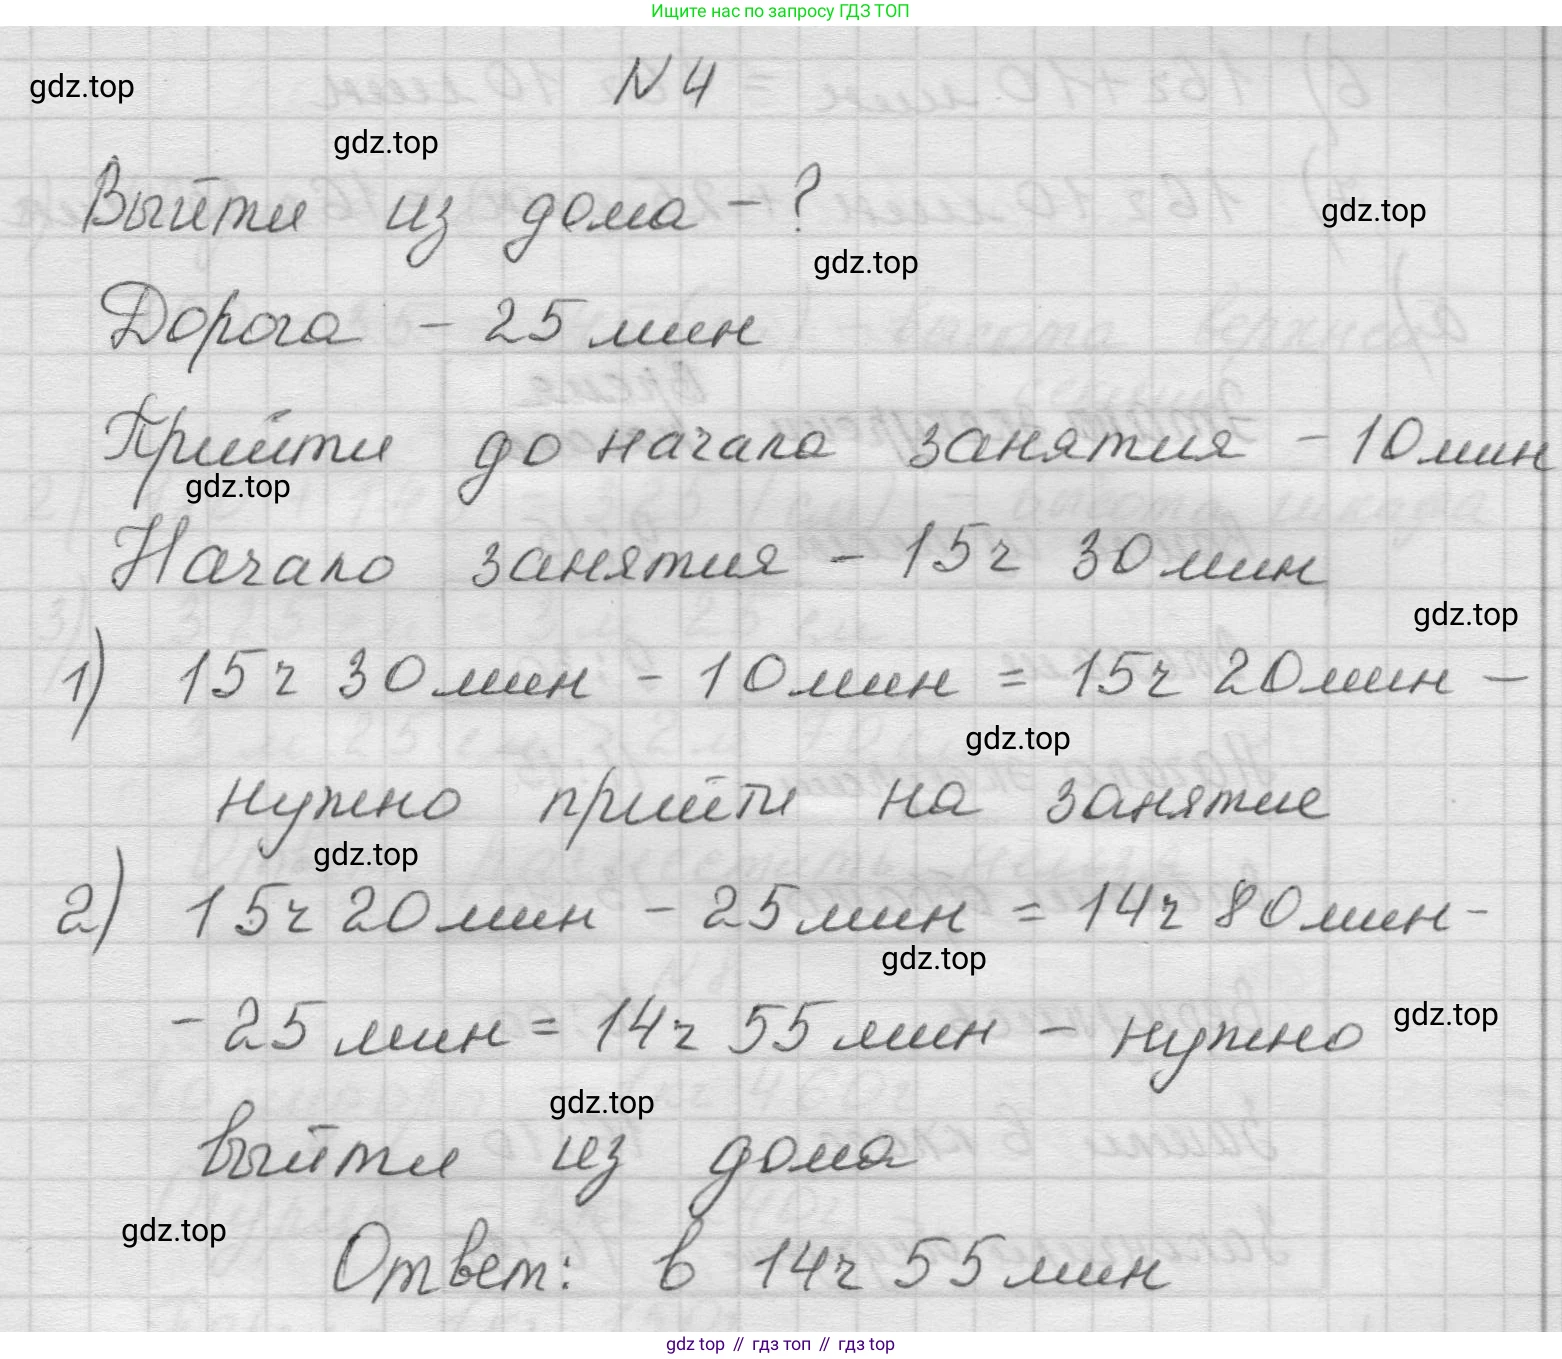 Ищите нас по запросу ГДЗ ТОП
N 4
gdz.top
gdz.top
Выйти из дома - ?
gdz.top
gdz.top
Дорога - 25 мин
Прийти до начала занятия - 10 мин
gdz.top
Начало занятия - 15 ч 30 мин
gdz.top
1) 15 ч 30 мин - 10 мин = 15 ч 20 мин -
gdz.top
нужно прийти на занятие
gdz.top
2) 15 ч 20 мин - 25 мин = 14 ч 80 мин -
gdz.top
- 25 мин = 14 ч 55 мин - нужно
gdz.top
gdz.top
выйти из дома
gdz.top
Ответ: в 14 ч 55 мин
gdz top // гдз топ // гдз top